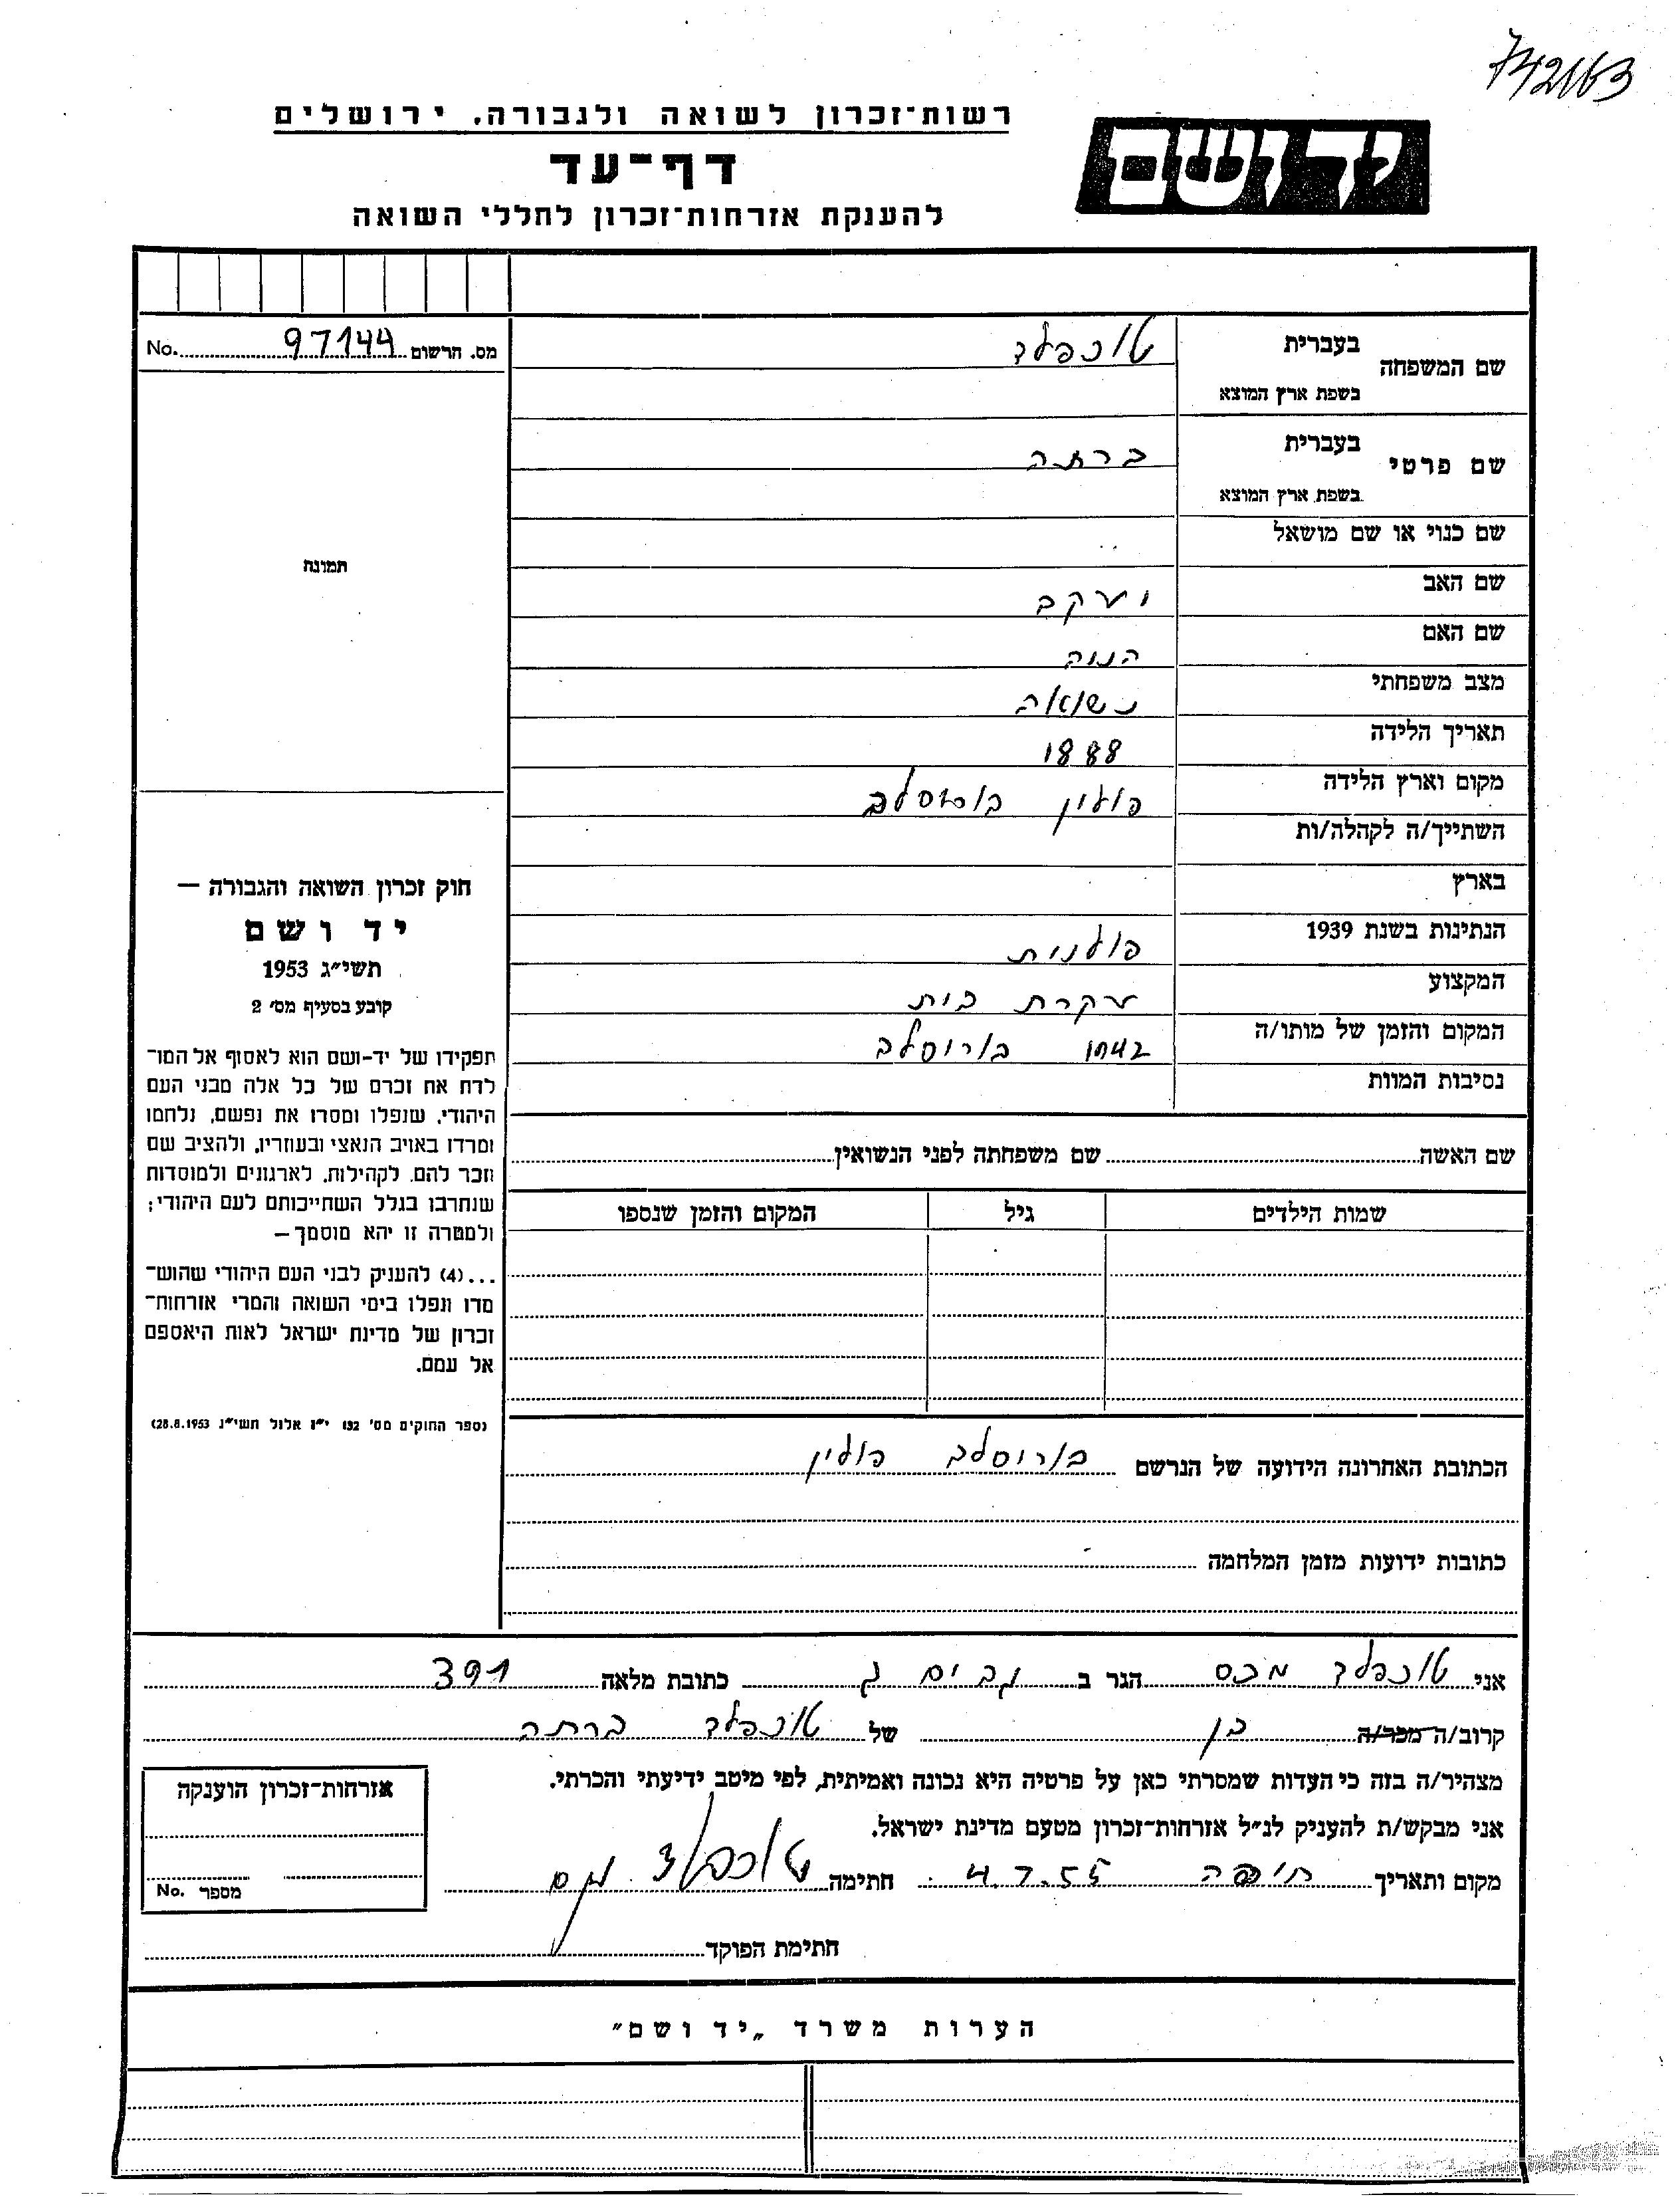 742163
רשות־זכרון לשואה ולגבורה, ירושלים
יד ושם
דף־עד
להענקת אזרחות־זכרון לחללי השואה
מס. הרשום 97144 No.
שם המשפחה
בעברית
טוכפלד
בשפת ארץ המוצא
שם פרטי
בעברית
ברתה
בשפת ארץ המוצא
שם כנוי או שם מושאל
שם האב יעקב
שם האם
מצב משפחתי נשואה
תאריך הלידה 1888
מקום וארץ הלידה פולין
השתייך/ה לקהלה/ות
בארץ
הנתינות בשנת 1939 פולנית
המקצוע עקרת בית
המקום והזמן של מותו/ה 1942 בוריסלב
נסיבות המוות
תמונה
חוק זכרון השואה והגבורה —
יד ושם
תשי״ג 1953
קובע בסעיף מס׳ 2
תפקידו של יד-ושם הוא לאסוף אל המו־
לדת את זכרם של כל אלה מבני העם
היהודי, שנפלו ומסרו את נפשם, נלחמו
ומרדו באויב הנאצי ובעוזריו, ולהציב שם
וזכר להם, לקהילות, לארגונים ולמוסדות
שנחרבו בגלל השתייכותם לעם היהודי;
ולמטרה זו יהא מוסמך —
...(4) להעניק לבני העם היהודי שהוש־
מדו ונפלו בימי השואה והמרי אזרחות־
זכרון של מדינת ישראל לאות היאספם
אל עמם.
(ספר החוקים מס׳ 132 י״ז אלול תשי״ג 28.8.1953)
שם האשה שם משפחתה לפני הנשואין
שמות הילדים גיל המקום והזמן שנספו
הכתובת האחרונה הידועה של הנרשם בוריסלב פולין
כתובות ידועות מזמן המלחמה
אני טוכפלד מכס הגר ב כתובת מלאה 391
קרוב/ה מכר/ה בן של טוכפלד ברתה
מצהיר/ה בזה כי העדות שמסרתי כאן על פרטיה היא נכונה ואמיתית, לפי מיטב ידיעתי והכרתי.
אני מבקש/ת להעניק לנ״ל אזרחות־זכרון מטעם מדינת ישראל.
מקום ותאריך חיפה 4.7.55 חתימה טוכפלד מכס
חתימת הפוקד
אזרחות־זכרון הוענקה
מספר No.
הערות משרד „יד ושם״